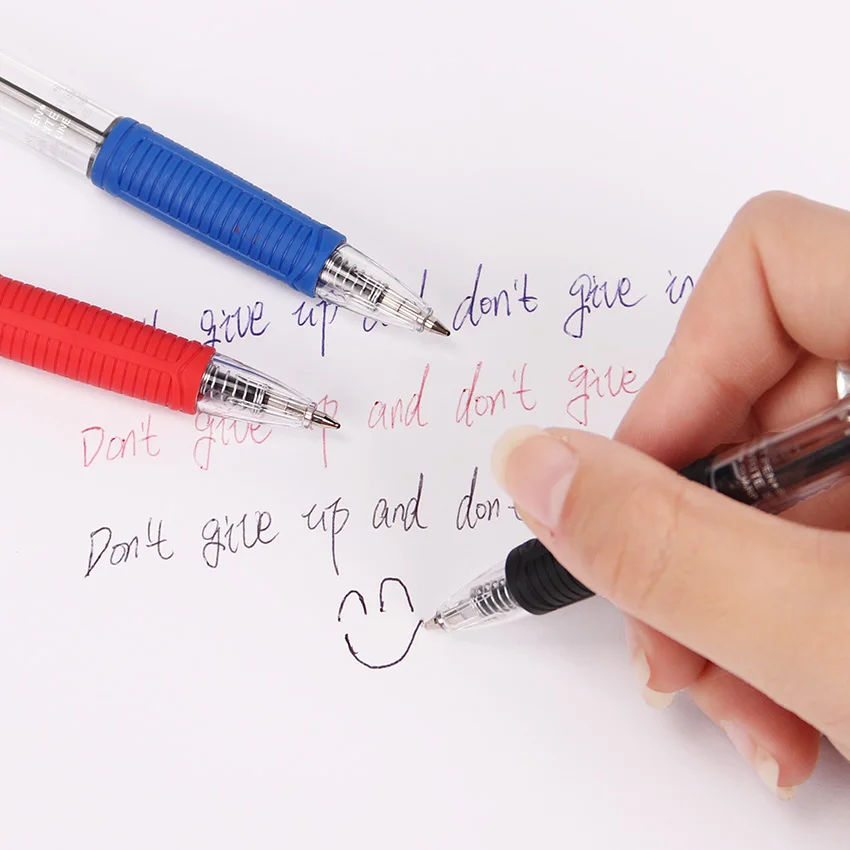 give up and don't give in
Don't give up and don't give
Don't give up and don't